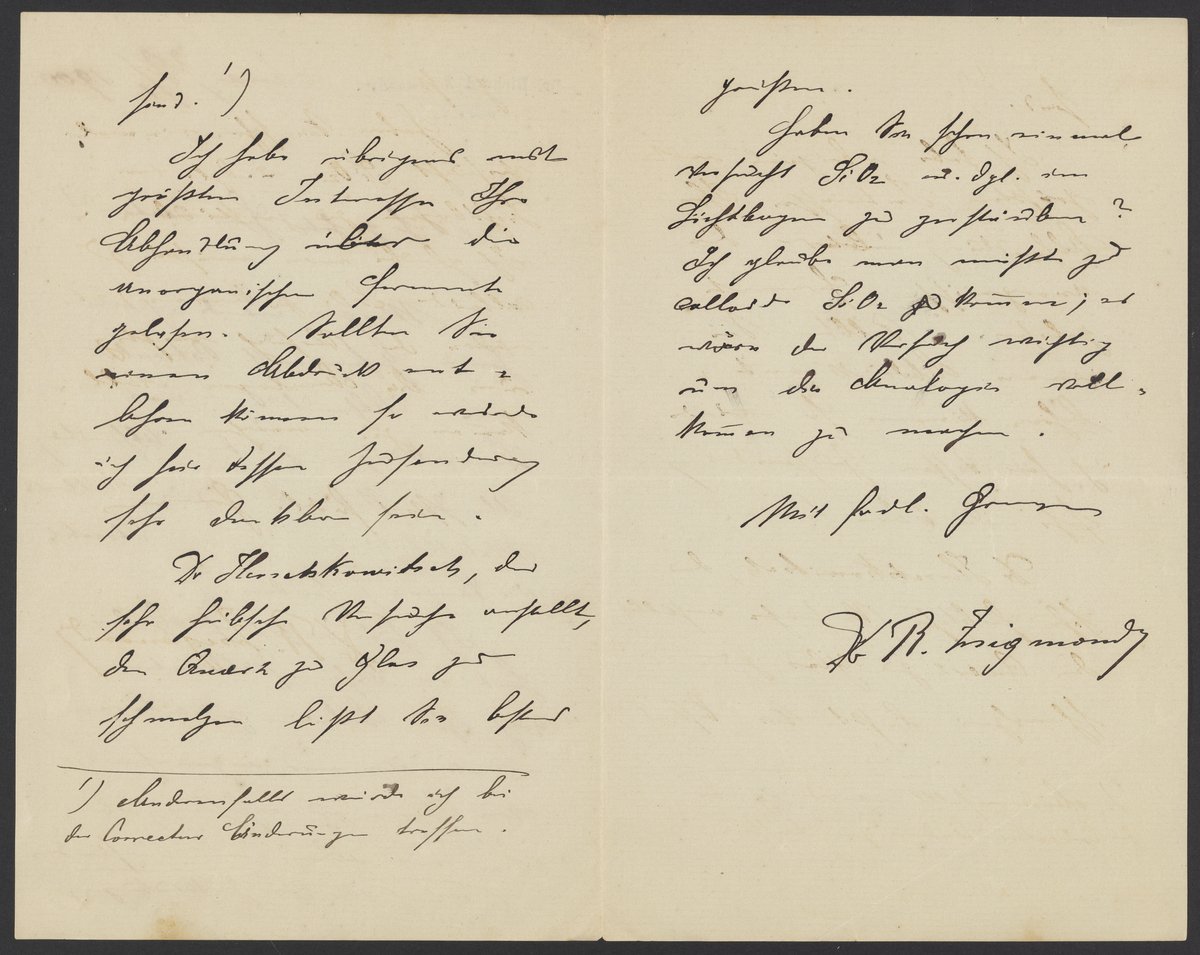 sind. ¹)
Ich habe übrigens mit
größtem Interesse Ihre
Abhandlung über die
anorganischen Fermente
gelesen. Sollten Sie
einen Abdruck ent-
behren können so würde
ich für dessen Zusendung
sehr dankbar sein.
Dr , der
sehr hübsche Versuche anstellt,
den Quarz zu Glas zu
schmelzen läßt Sie bestens
¹) Andernfalls würde ich bei
der Correctur Änderungen treffen.
grüßen.
Haben Sie schon einmal
versucht SiO₂ u. dgl. im
Lichtbogen zu zerstäuben?
Ich glaube man müßte zu
colloid. SiO₂ kommen; es
wäre der Versuch wichtig
um die Analogie voll-
kommen zu machen.
Mit frdl. Grüssen
Dr R. Zsigmondy